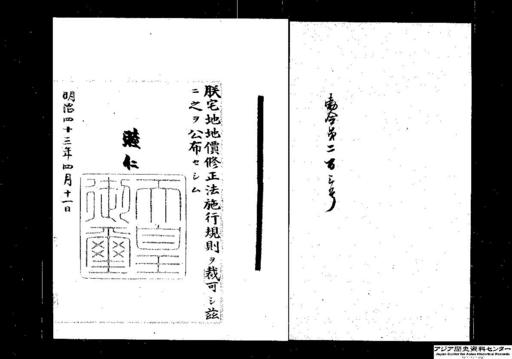 勅令第二百三号
朕宅地地價修正法施行規則ヲ裁可シ茲
ニ之ヲ公布セシム
睦仁
天皇
御璽
明治四十三年四月十一日
アジア歴史資料センター
Japan Center for Asian Historical Records